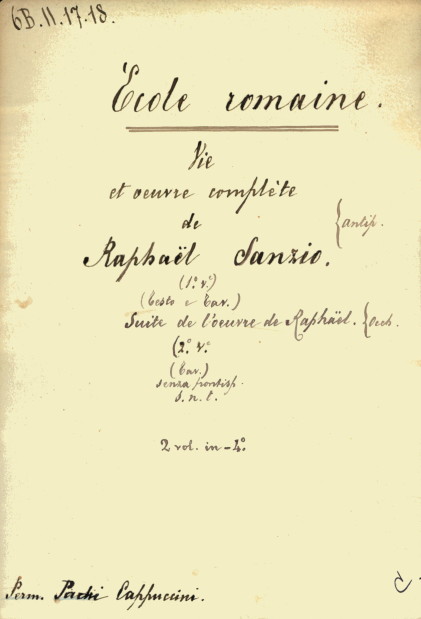 6B.II.17-18.
École romaine.
Vie
et oeuvre complète
de
{antip.
Raphaël Sanzio.
(1º v.º)
(Testo e Tav.)
Suite de l'oeuvre de Raphaël. {Occh.
(2º v.º
(Tav.)
senza frontisp.
s. n. t.
2 vol. in-4º.
Perm. Padri Cappuccini.